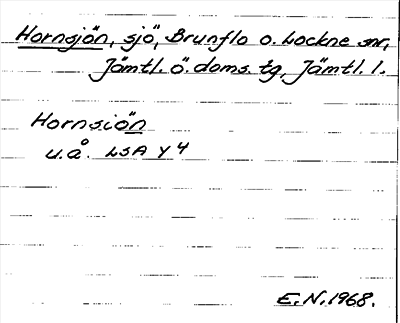 Hornsjön, sjö, Brunflo o. Lockne snr,
Jämtl. ö. doms. tg, Jämtl. l.
Hornsiön
u.å. LSA Y 4
E.N. 1968.